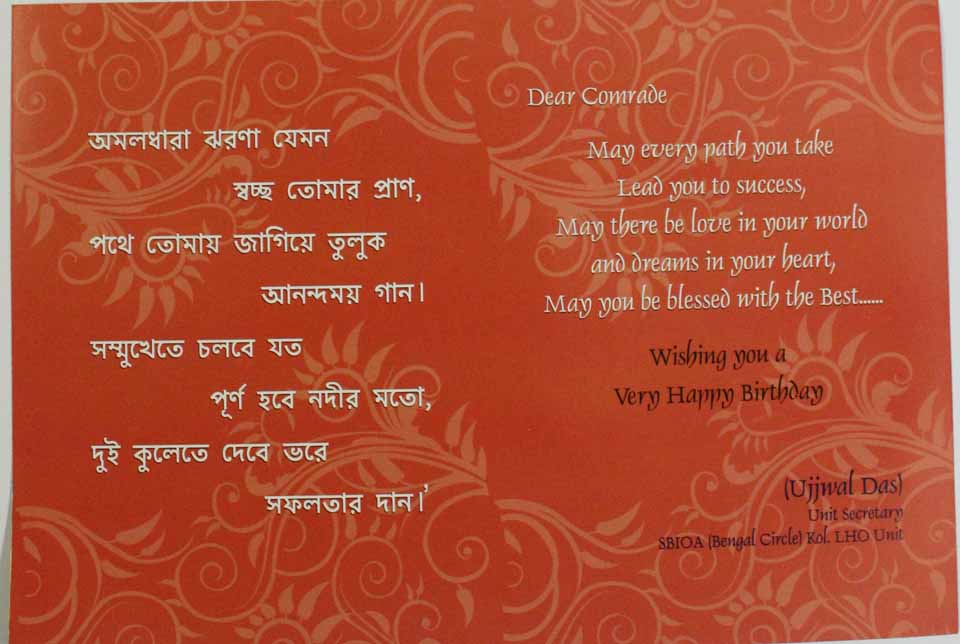 অমলধারা ঝরণা যেমন
স্বচ্ছ তোমার প্রাণ,
পথে তোমায় জাগিয়ে তুলুক
আনন্দময় গান।
সম্মুখেতে চলবে যত
পূর্ণ হবে নদীর মতো,
দুই কুলেতে দেবে ভরে
সফলতার দান।’
Dear Comrade
May every path you take
Lead you to success,
May there be love in your world
and dreams in your heart,
May you be blessed with the Best......
Wishing you a
Very Happy Birthday
(Ujjwal Das)
Unit Secretary
SBIOA (Bengal Circle) Kol. LHO Unit